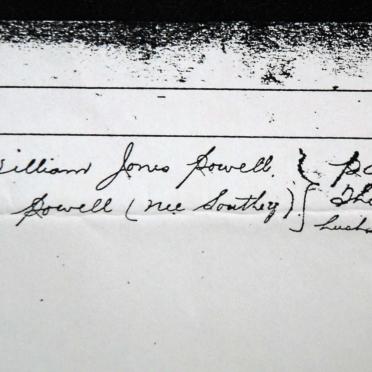 William Jones Powell.
Powell (nee Southey)